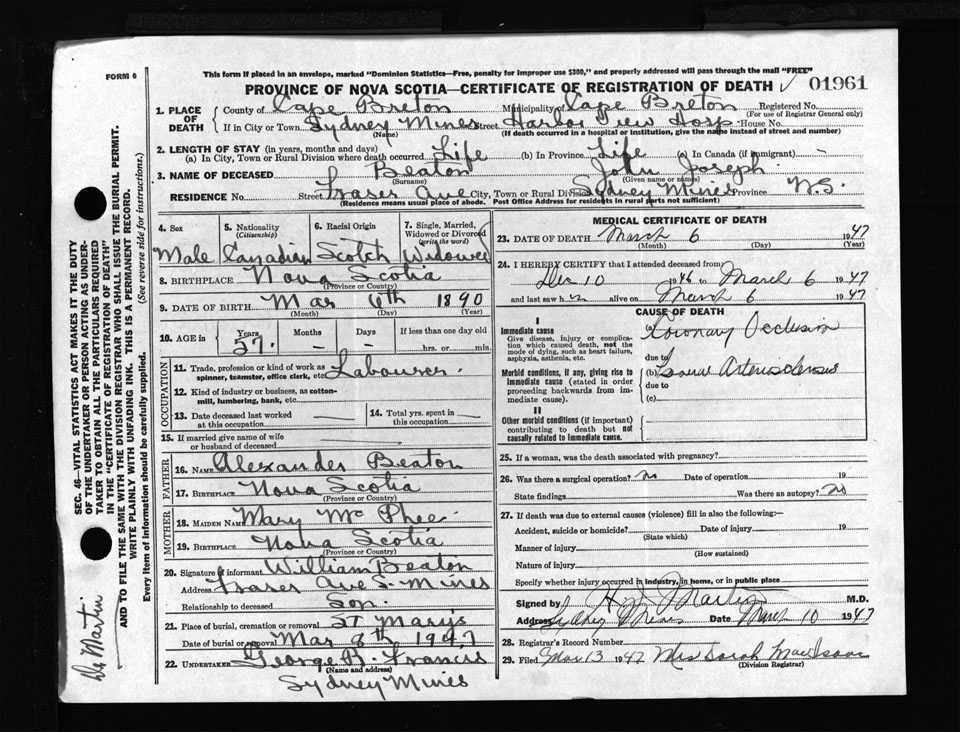 FORM 6
This form if placed in an envelope, marked "Dominion Statistics—Free, penalty for improper use $300," and properly addressed will pass through the mail "FREE"
PROVINCE OF NOVA SCOTIA—CERTIFICATE OF REGISTRATION OF DEATH ✓ 01961
1. PLACE OF DEATH County of Cape Breton Municipality of Cape Breton Registered No.
(For use of Registrar General only)
If in City or Town Sydney Mines Street Harbor View Hosp House No.
(Name) (If death occurred in a hospital or institution, give the name instead of street and number)
2. LENGTH OF STAY (in years, months and days)
(a) In City, Town or Rural Division where death occurred Life (b) In Province Life (c) In Canada (if immigrant) -
3. NAME OF DECEASED Beaton John Joseph
(Surname) (Given name or names)
RESIDENCE No. Street Fraser Ave City, Town or Rural Division Sydney Mines Province N.S.
(Residence means usual place of abode. Post Office Address for residents in rural parts not sufficient)
4. Sex 5. Nationality (Citizenship) 6. Racial Origin 7. Single, Married, Widowed or Divorced (write the word)
Male Canadian Scotch Widowed
8. BIRTHPLACE Nova Scotia
(Province or Country)
9. DATE OF BIRTH Mar 6th 1890
(Month) (Day) (Year)
10. AGE in Years Months Days If less than one day old
57. — — hrs. or min.
OCCUPATION
11. Trade, profession or kind of work as spinner, teamster, office clerk, etc. Labourer.
12. Kind of industry or business, as cotton-mill, lumbering, bank, etc.
13. Date deceased last worked at this occupation —
14. Total yrs. spent in this occupation —
15. If married give name of wife or husband of deceased
FATHER
16. NAME Alexander Beaton
17. BIRTHPLACE Nova Scotia
(Province or Country)
MOTHER
18. MAIDEN NAME Mary McPhee
19. BIRTHPLACE Nova Scotia
(Province or Country)
20. Signature of informant William Beaton
Address Fraser Ave S. Mines
Relationship to deceased Son.
21. Place of burial, cremation or removal St Mary's
Date of burial or removal Mar 8th 1947
22. UNDERTAKER George R. Francis
(Name and address)
Sydney Mines
MEDICAL CERTIFICATE OF DEATH
23. DATE OF DEATH March 6 1947
(Month) (Day) (Year)
24. I HEREBY CERTIFY that I attended deceased from
Dec 10 1946 to March 6 1947
and last saw h m alive on March 6 1947
CAUSE OF DEATH
I
Immediate cause
Give disease, injury or complication which caused death, not the mode of dying, such as heart failure, asphyxia, asthenia, etc.
(a) Coronary Occlusion
due to
Morbid conditions, if any, giving rise to immediate cause (stated in order proceeding backwards from immediate cause).
(b) Arteriosclerosis
due to
(c)
II
Other morbid conditions (if important) contributing to death but not causally related to immediate cause.
25. If a woman, was the death associated with pregnancy?
26. Was there a surgical operation? no Date of operation 19
State findings Was there an autopsy? no
27. If death was due to external causes (violence) fill in also the following:—
Accident, suicide or homicide? Date of injury 19
(State which)
Manner of injury
(How sustained)
Nature of injury
Specify whether injury occurred in industry, in home, or in public place
Signed by Martin M.D.
Address Sydney Mines Date March 10 1947
28. Registrar's Record Number
29. Filed Mar 13 1947 Mrs Sarah MacIsaac
(Division Registrar)
SEC. 46—VITAL STATISTICS ACT MAKES IT THE DUTY
OF THE UNDERTAKER OR PERSON ACTING AS UNDERTAKER TO OBTAIN ALL THE PARTICULARS REQUIRED
IN THE "CERTIFICATE OF REGISTRATION OF DEATH"
AND TO FILE THE SAME WITH THE DIVISION REGISTRAR WHO SHALL ISSUE THE BURIAL PERMIT.
WRITE PLAINLY WITH UNFADING INK. THIS IS A PERMANENT RECORD.
Every item of information should be carefully supplied. (See reverse side for instructions.)
Dr Martin